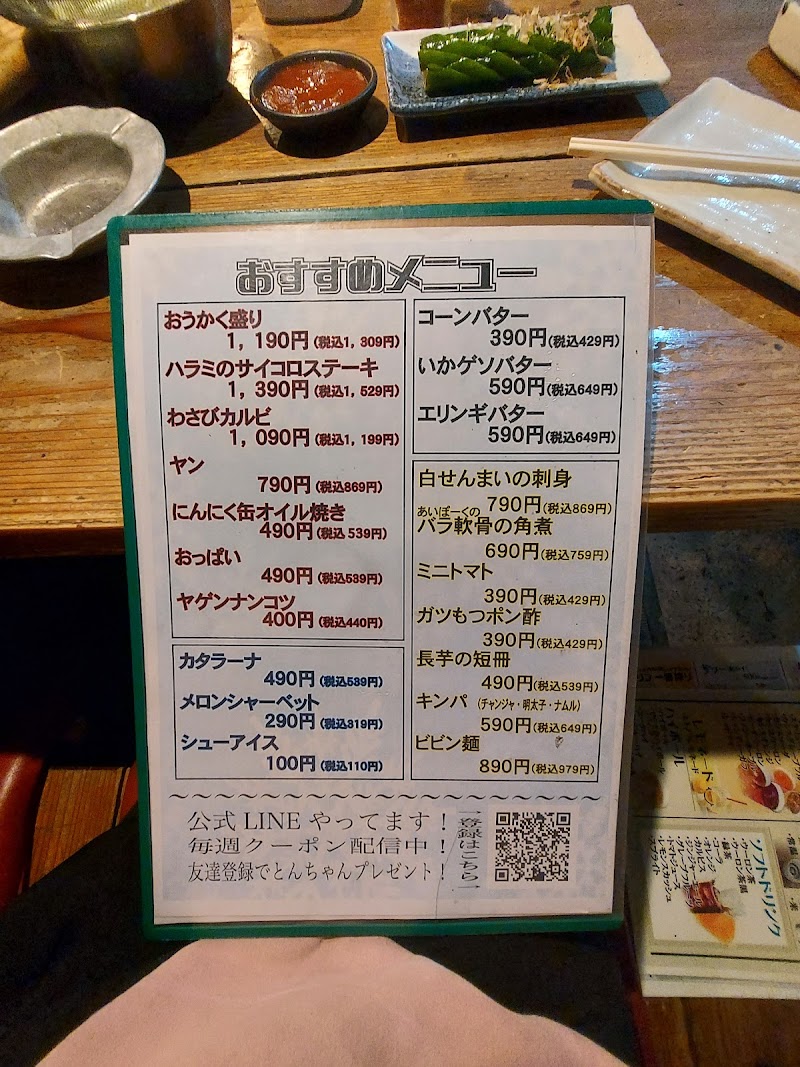 おすすめメニュー
おうかく盛り
1,190円(税込1,309円)
ハラミのサイコロステーキ
1,390円(税込1,529円)
わさびカルビ
1,090円(税込1,199円)
ヤン
790円(税込869円)
にんにく缶オイル焼き
490円(税込539円)
おっぱい
490円(税込539円)
ヤゲンナンコツ
400円(税込440円)
カタラーナ
490円(税込539円)
メロンシャーベット
290円(税込319円)
シューアイス
100円(税込110円)
コーンバター
390円(税込429円)
いかゲソバター
590円(税込649円)
エリンギバター
590円(税込649円)
白せんまいの刺身
790円(税込869円)
あいぽーくの
バラ軟骨の角煮
690円(税込759円)
ミニトマト
390円(税込429円)
ガツもつポン酢
390円(税込429円)
長芋の短冊
490円(税込539円)
キンパ (チャンジャ・明太子・ナムル)
590円(税込649円)
ビビン麺
890円(税込979円)
公式LINEやってます!
毎週クーポン配信中!
友達登録でとんちゃんプレゼント!
登録はこちら→
ソフトドリンク
ウーロン茶
緑茶
コーラ